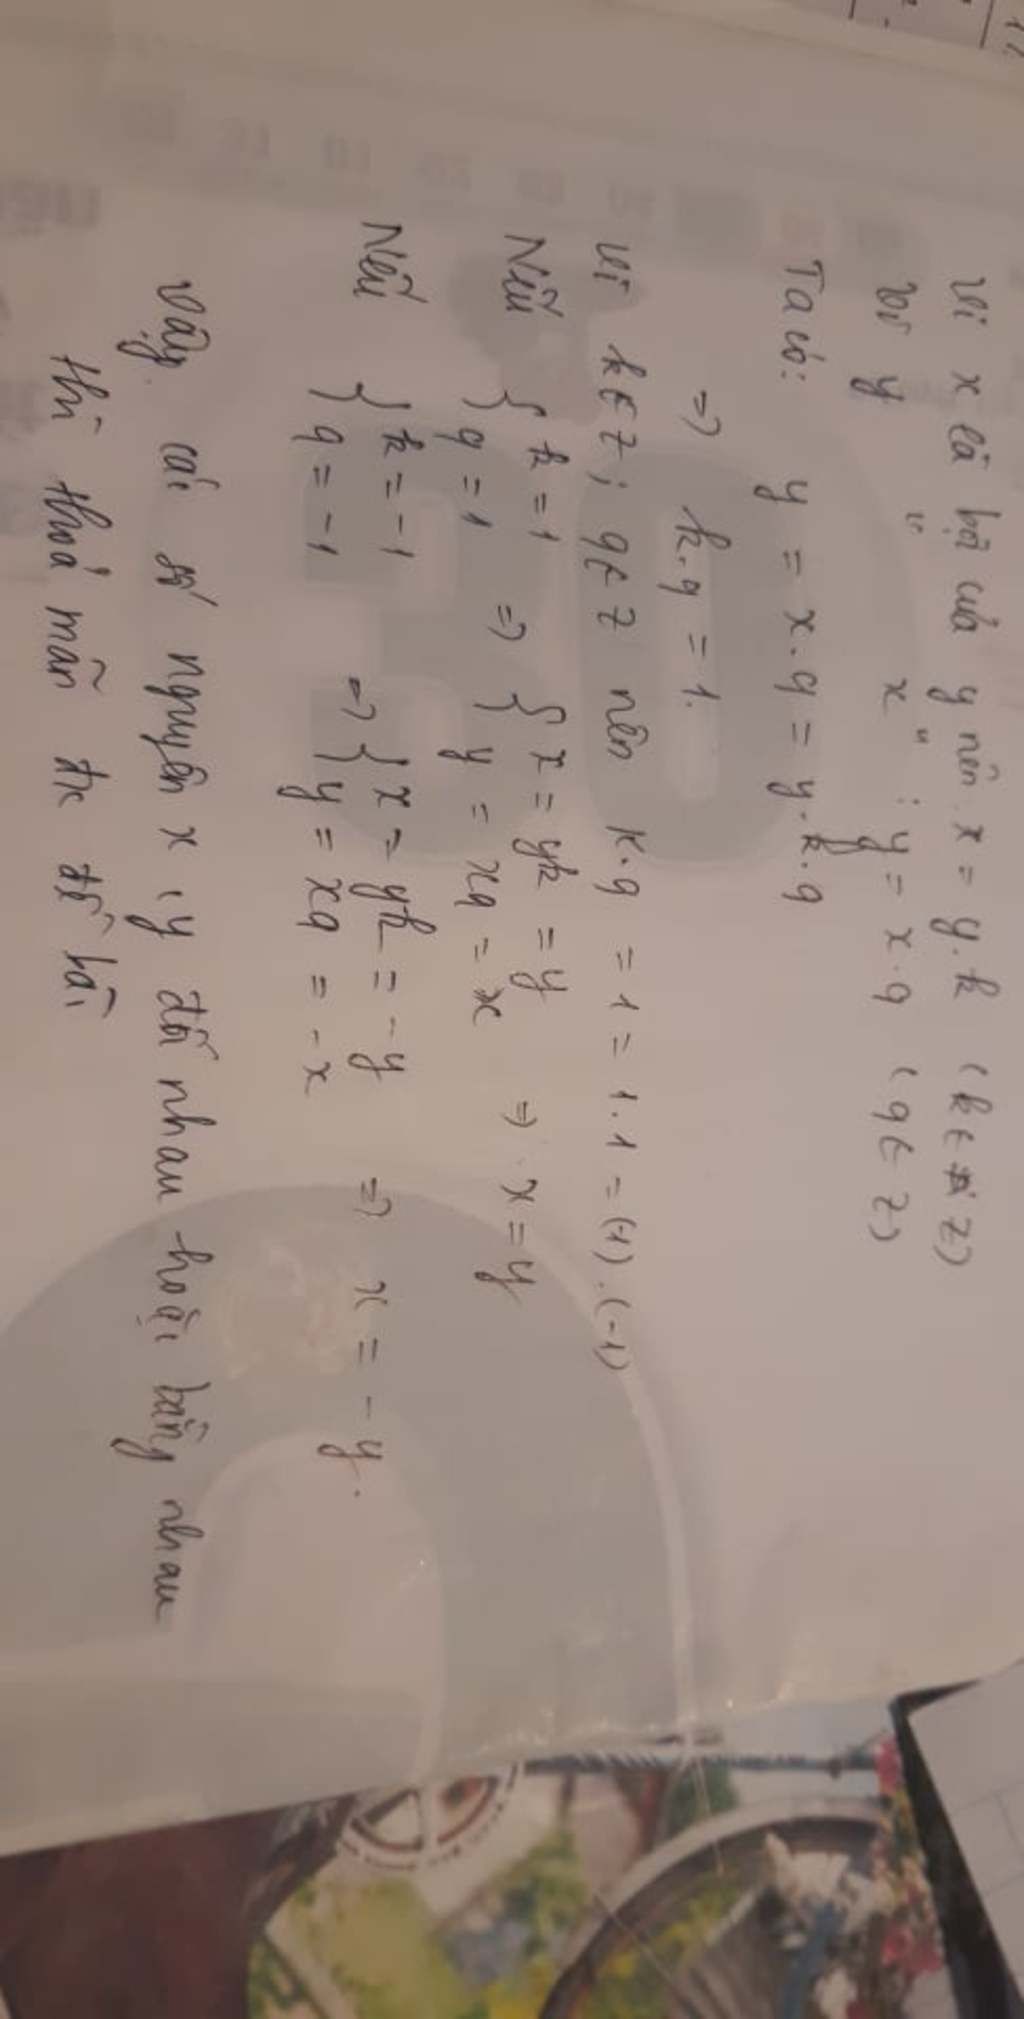 Vì x là bội của y nên x = y.k (k ∈ Z)
Vì y " x " : y = x.q (q ∈ Z)
Ta có: y = x.q = y.k.q
=> k.q = 1.
Vì k ∈ Z ; q ∈ Z nên k.q = 1 = 1.1 = (-1).(-1)
Nếu { k = 1 => { x = yk = y => x = y
q = 1 y = xq = x
Nếu { k = -1 => { x = yk = -y => x = -y.
q = -1 y = xq = -x
Vậy các số nguyên x, y đối nhau hoặc bằng nhau
thì thoả mãn đk đề bài